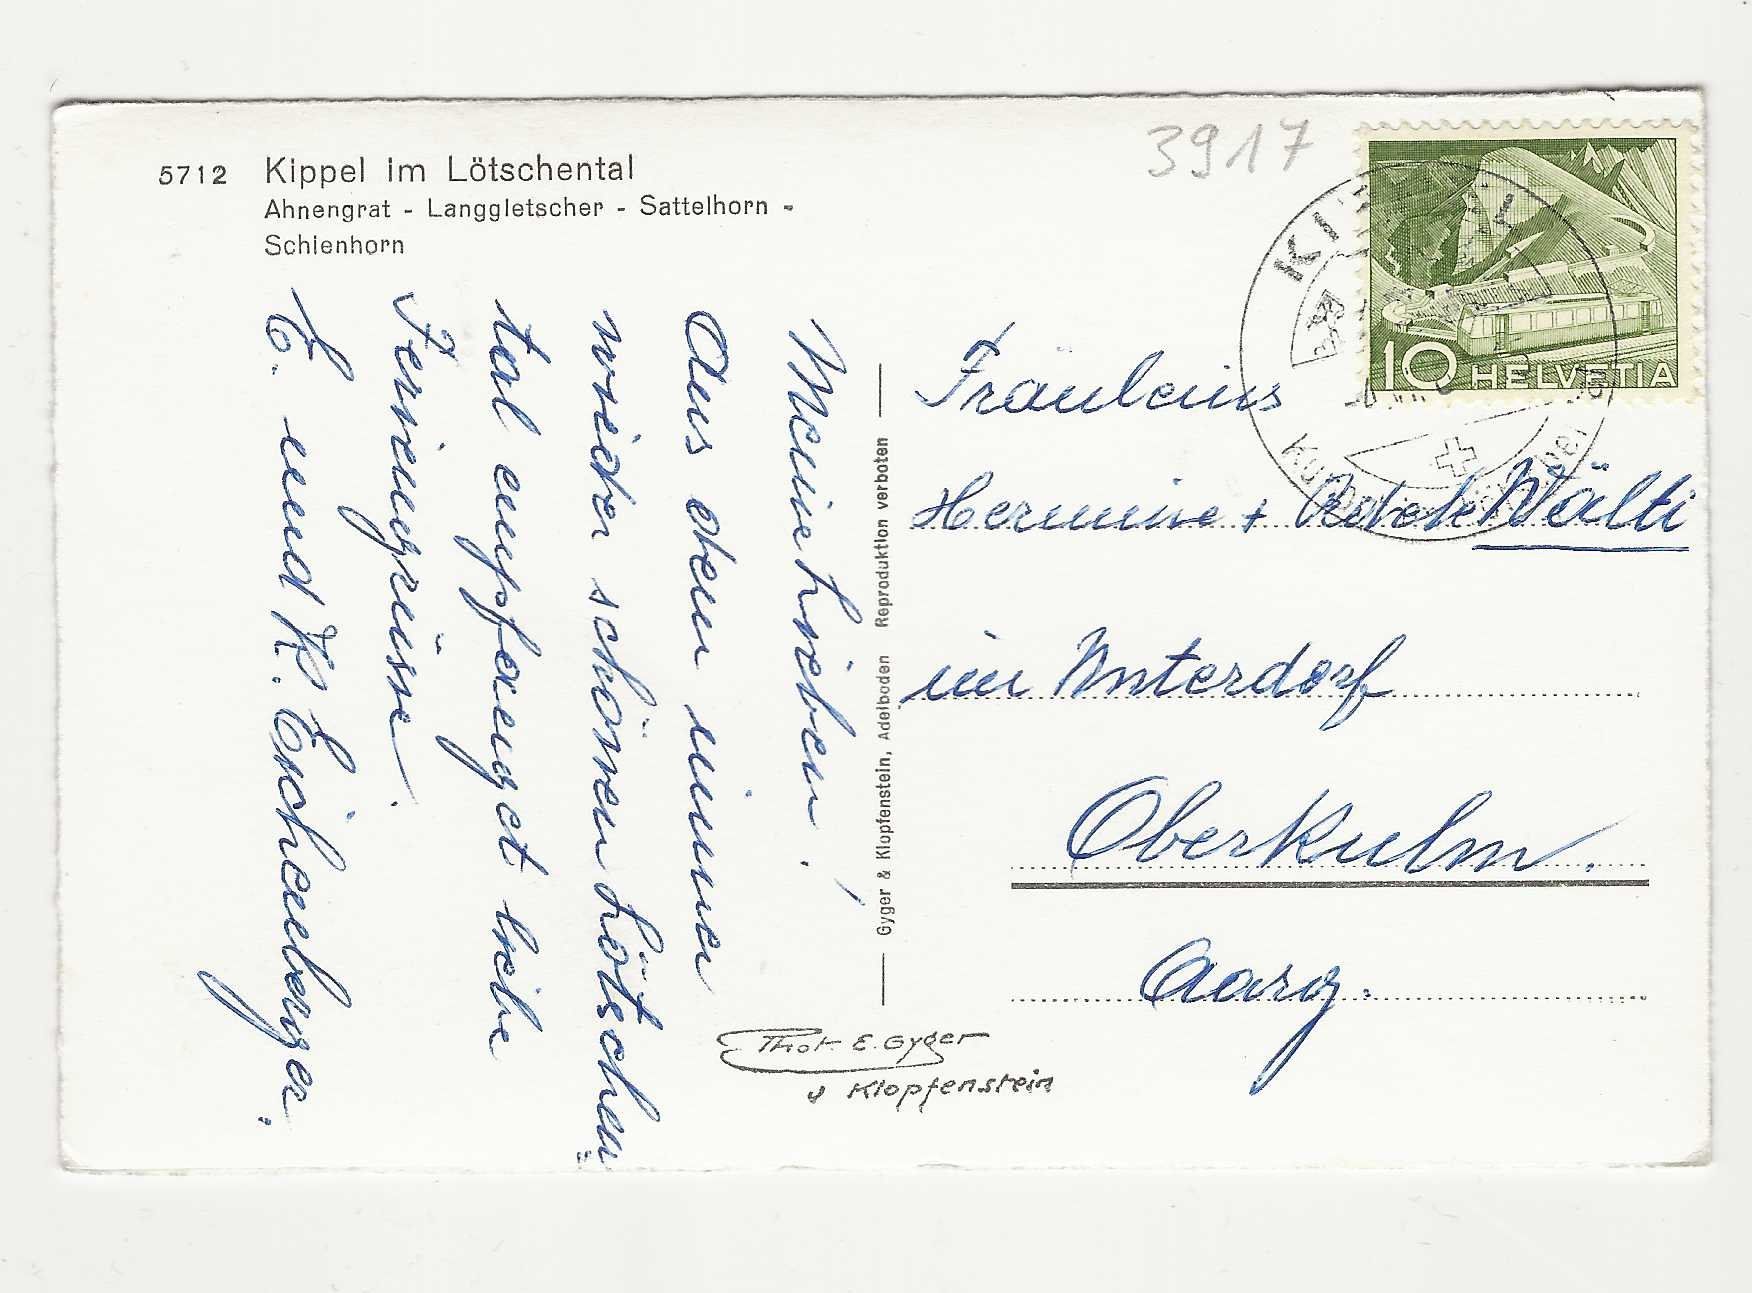 5712 Kippel im Lötschental
Ahnengrat - Langgletscher - Sattelhorn -
Schienhorn
3917
10 HELVETIA
Meine Lieben!
Aus dem immer
wieder schönen Lötschen
tal empfanget liebe
Feriengrüsse.
E. und K. Eichenberger.
Gyger & Klopfenstein, Adelboden Reproduktion verboten
Fräuleins
Hermine + Wälti
im Unterdorf
Oberkulm.
Aarg.
Phot. E. Gyger
u Klopfenstein